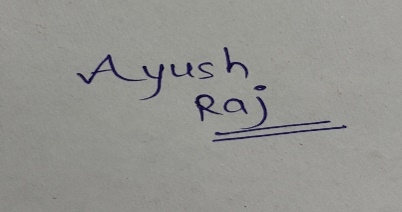 Ayush
Raj